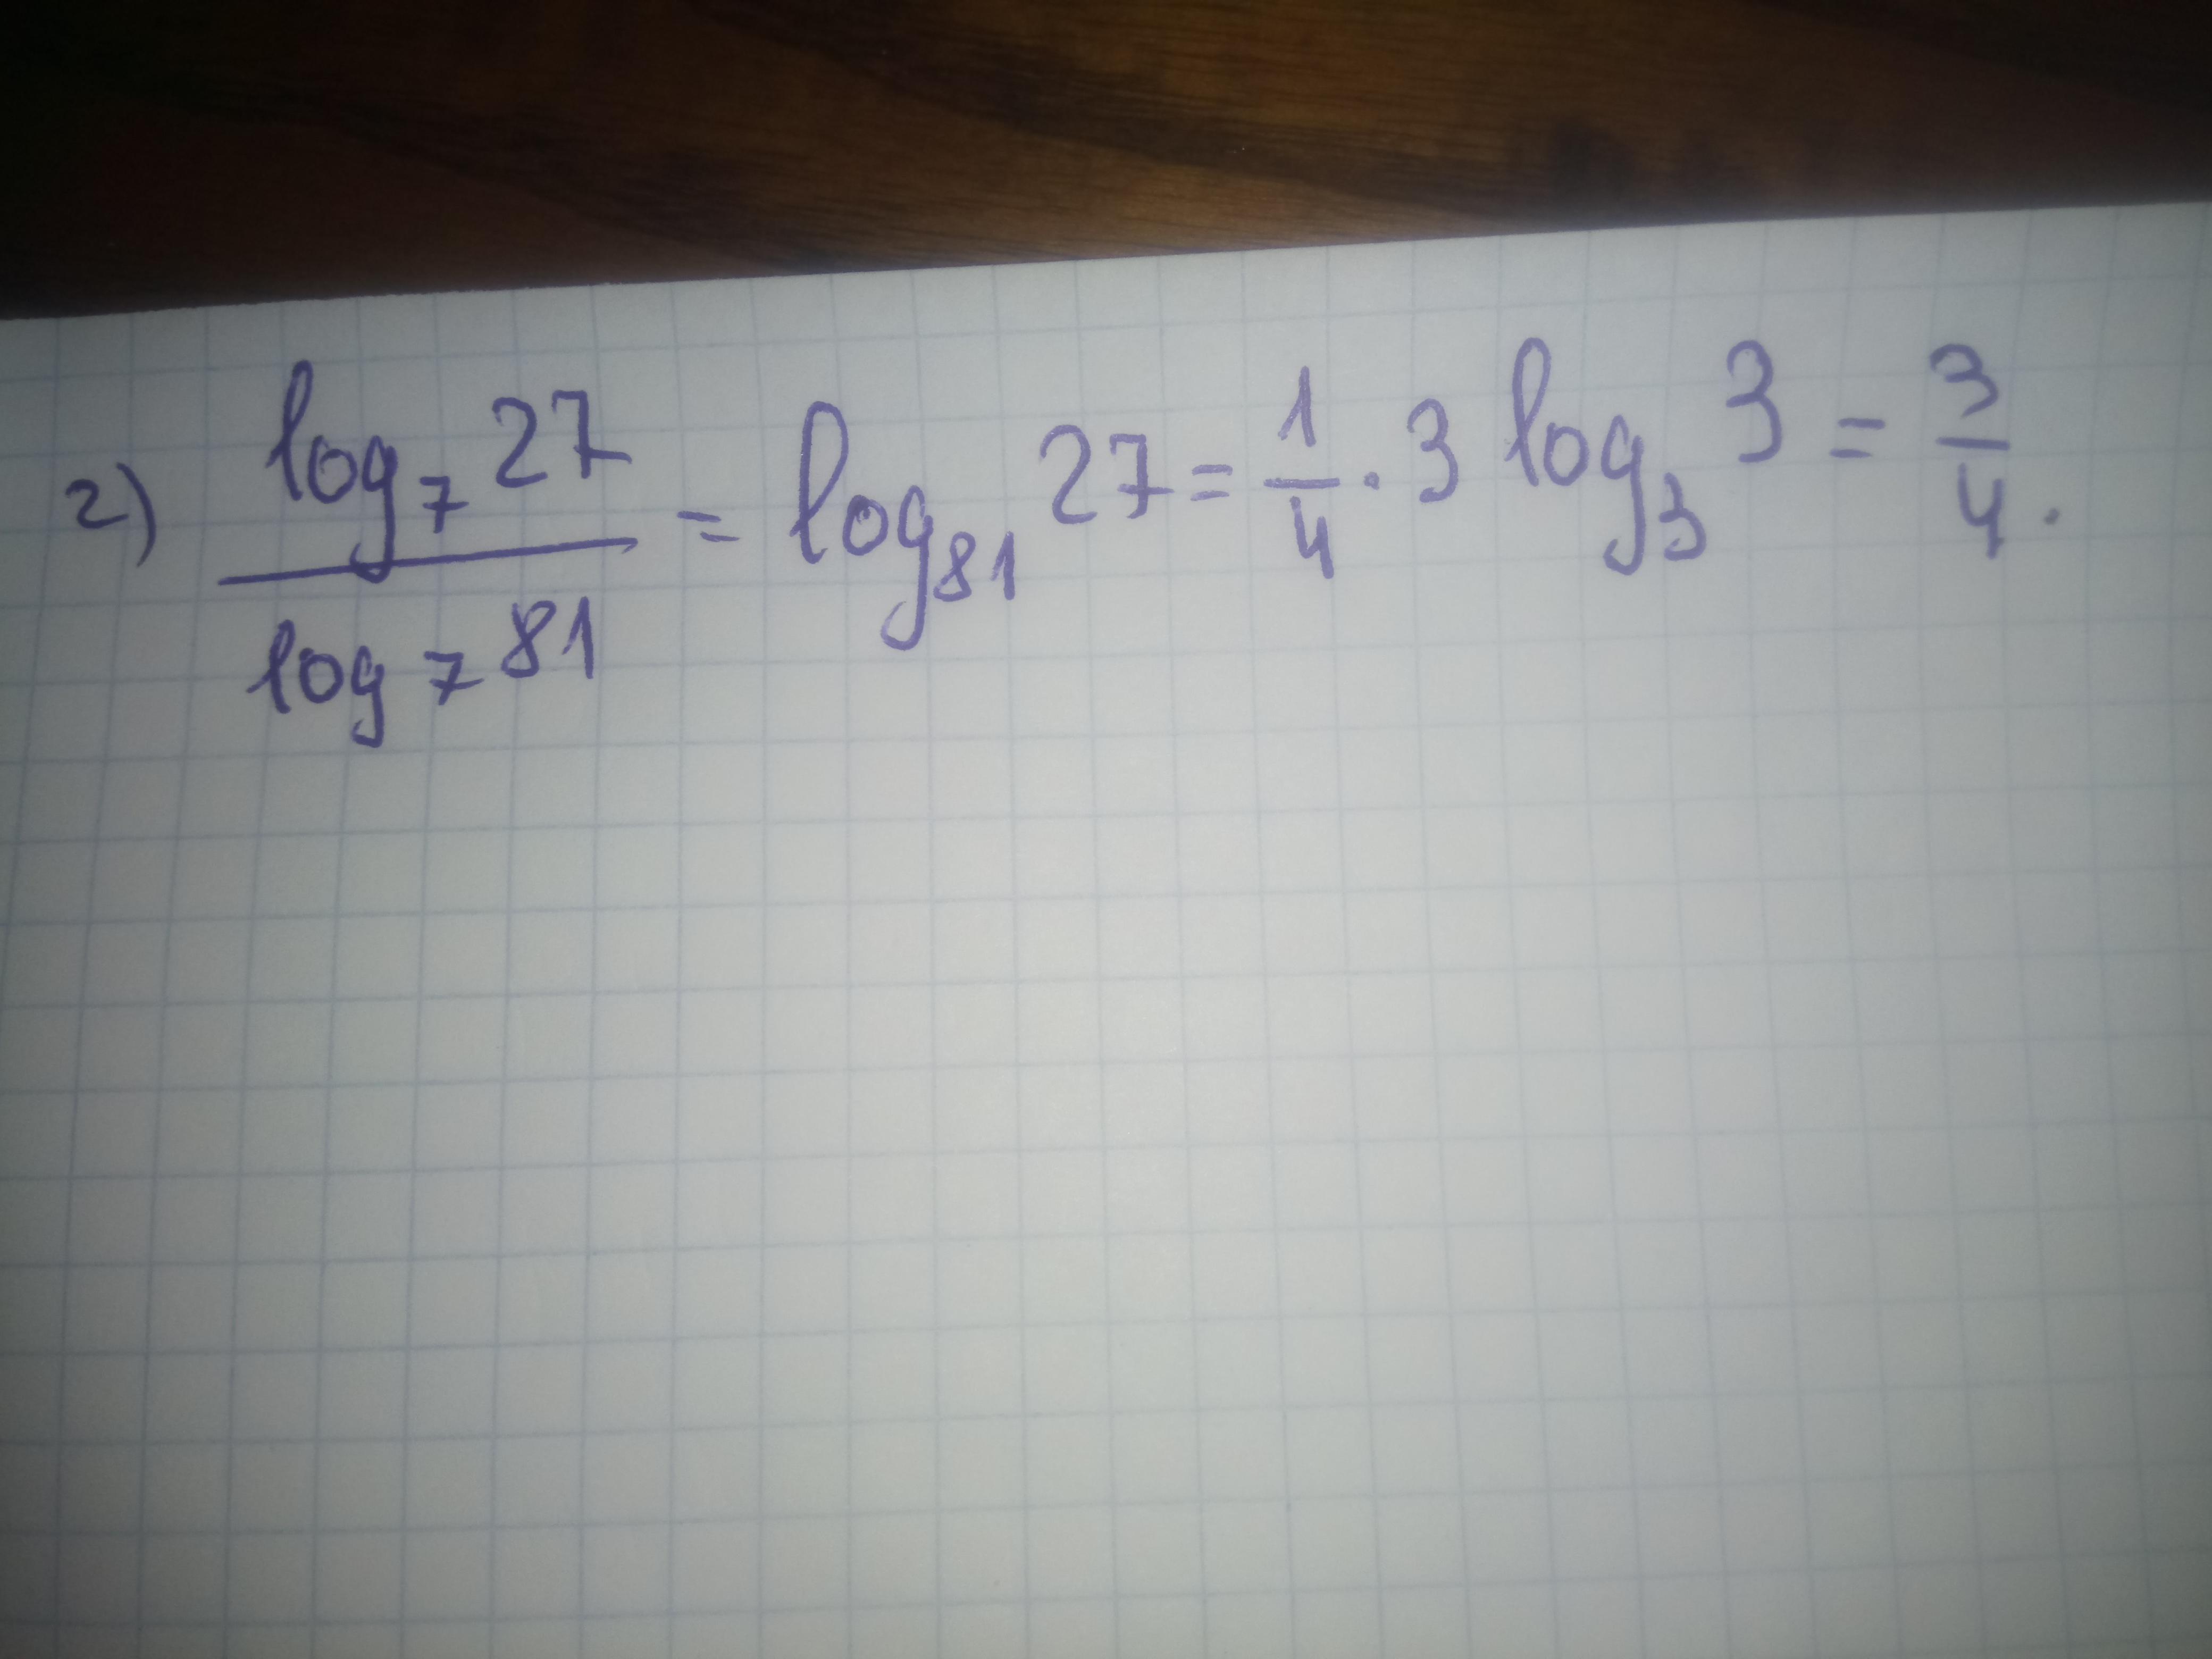 2) log₇ 27 / log₇ 81 = log₈₁ 27 = 1/4 · 3 log₃ 3 = 3/4.